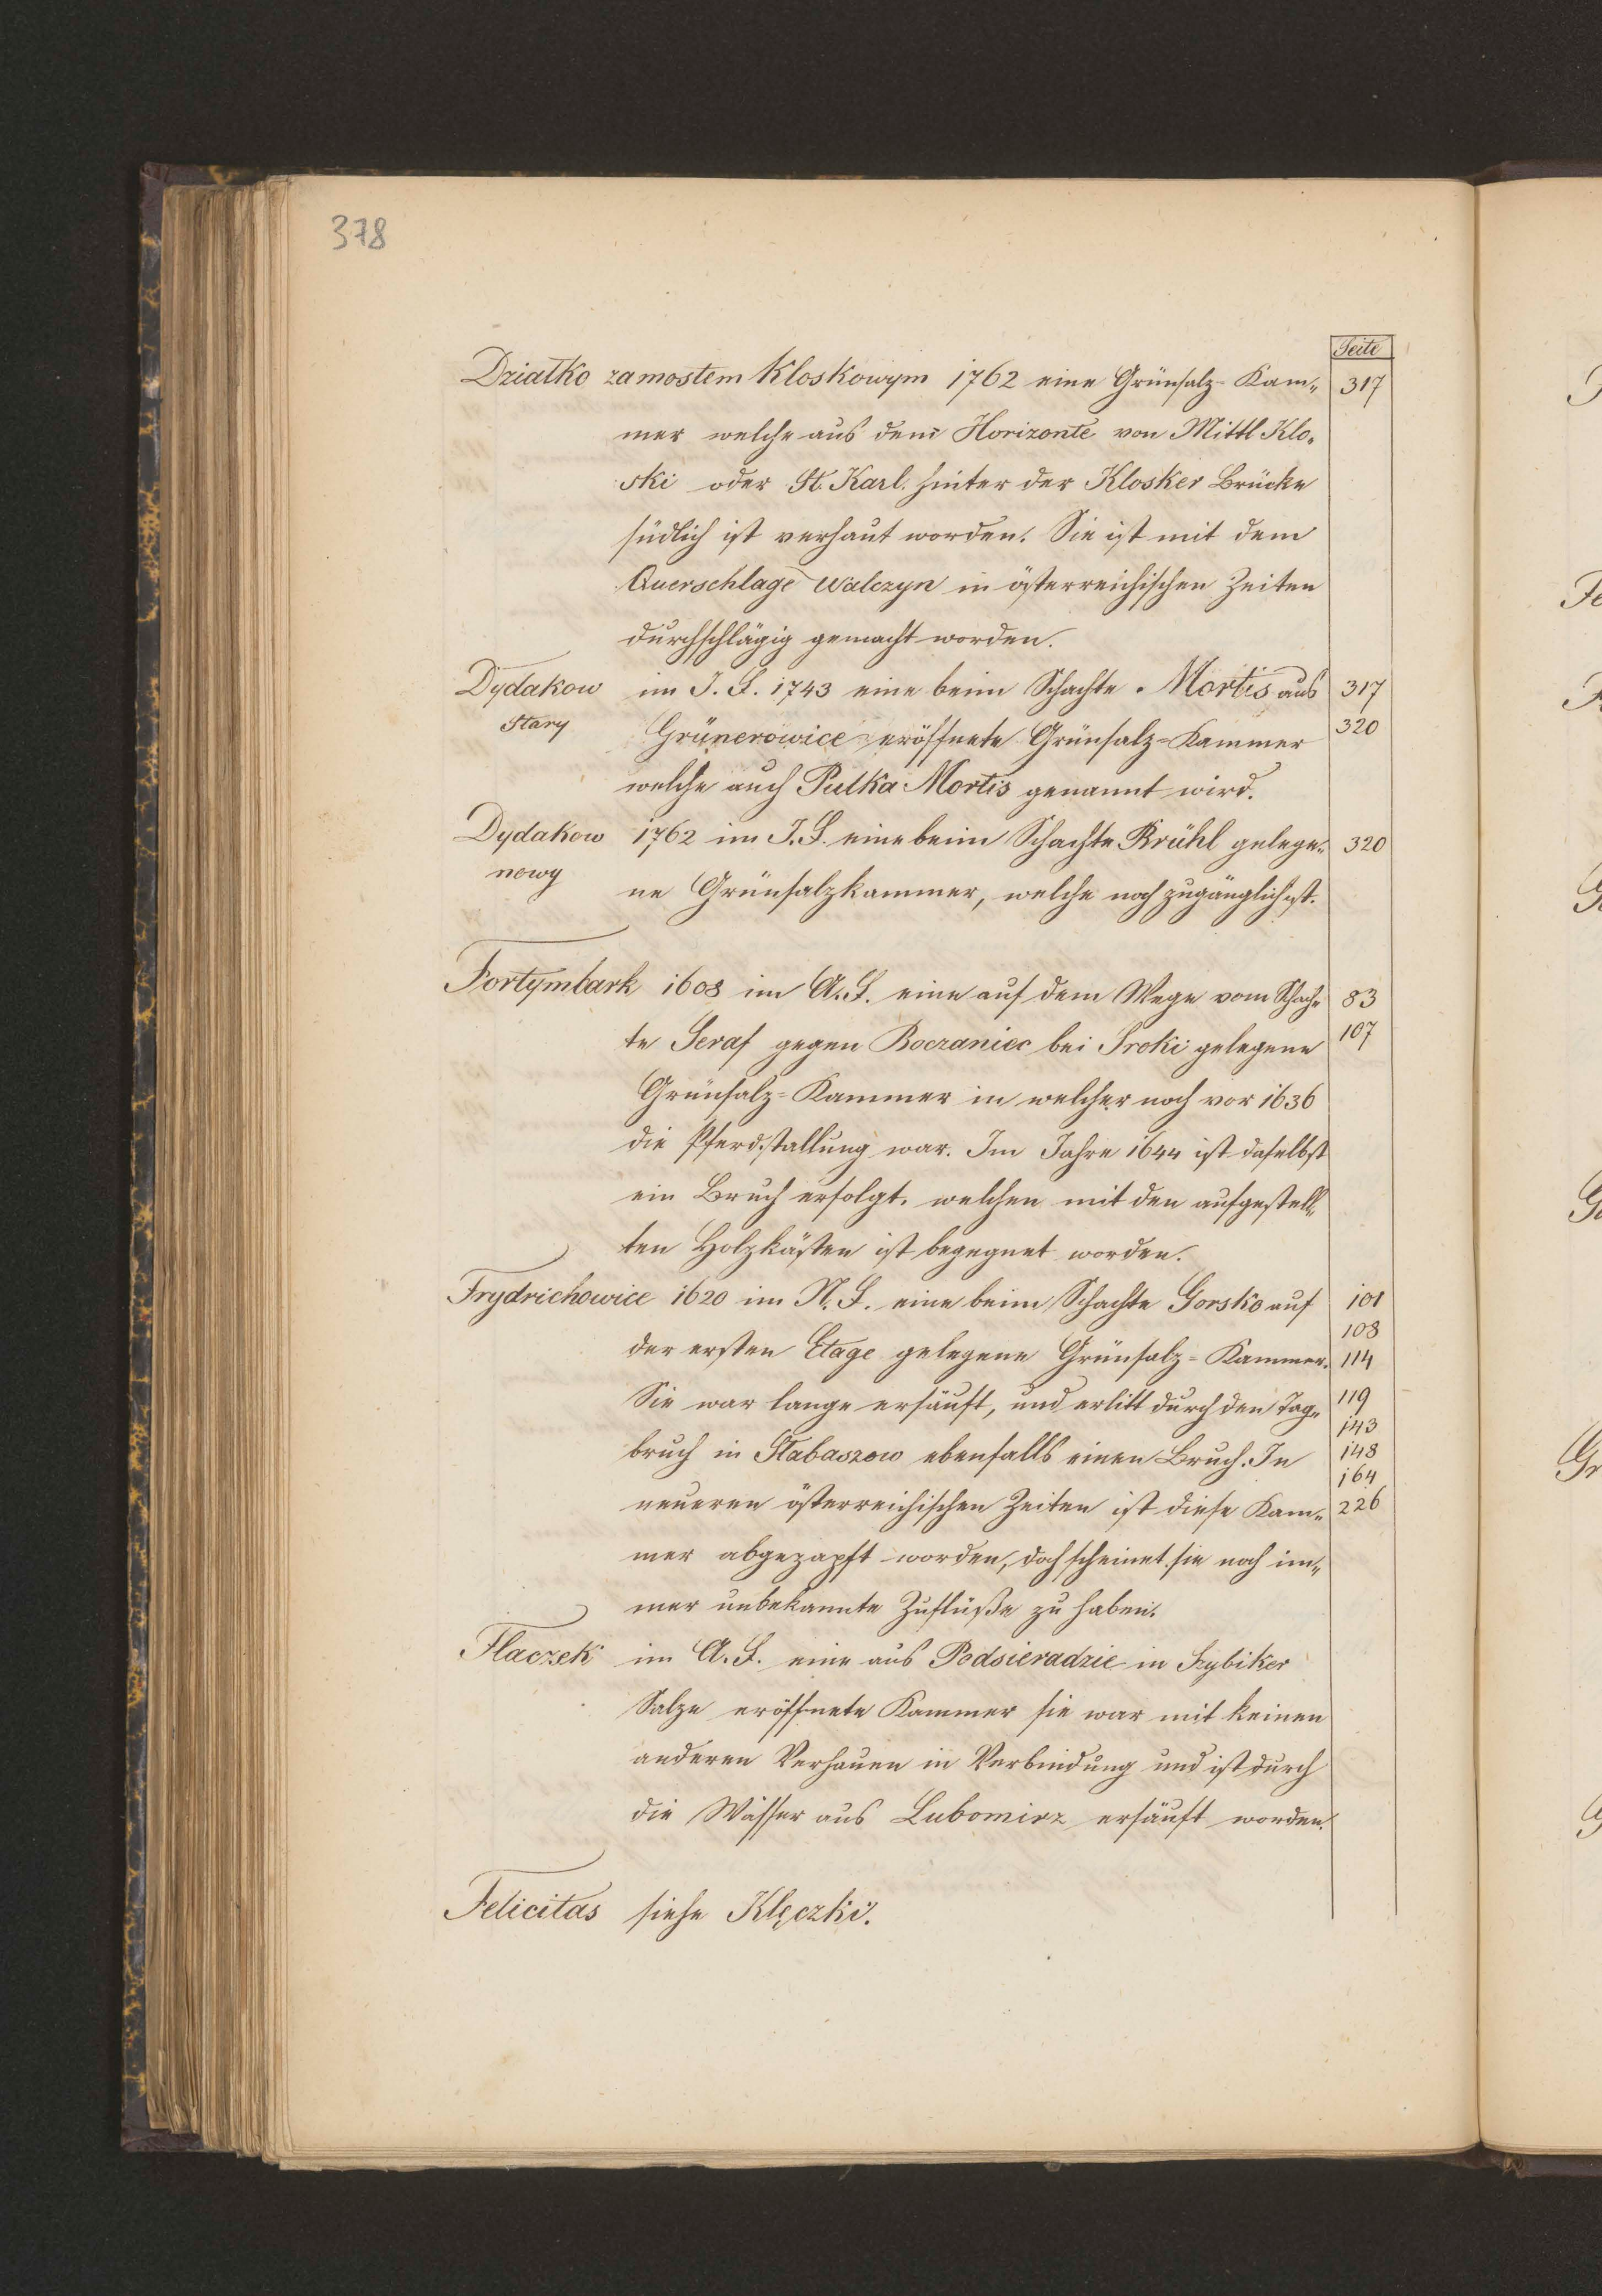 378
Seite
Dziatko zamostem Kloskowym 1762 eine Grünsalz-Kam- 317
mer welche aus dem Horizonte von Mittl Klo-
ski oder St. Karl. hinter der Klosker Brücke
südlich ist verhaut worden. Sie ist mit dem
Querschlage Walczyn in österreichischen Zeiten
durchschlägig gemacht worden.
Dydakow im J. F. 1743 eine beim Schachte Mortis aus 317
Stary Grünerowice eröffnete Grünsalz-Kammer 320
welche auch Pulka Mortis genannt wird.
Dydakow 1762 im J. F. eine beim Schachte Brühl gelege- 320
nowy ne Grünsalzkammer, welche noch zugänglich ist.
Fortymbark 1608 im A. F. eine auf dem Wege vom Schach- 83
te Seraf gegen Boczaniec bei Sroki gelegene 107
Grünsalz-Kammer in welcher noch vor 1636
die Pferdstallung war. Im Jahre 1644 ist daselbst
ein Bruch erfolgt, welchen mit den aufgestell-
ten Holzkästen ist begegnet worden.
Frydrichowice 1620 im N. F. eine beim Schachte Gorsko auf 101
108
der ersten Etage gelegene Grünsalz-Kammer. 114
Sie war lange ersäuft, und erlitt durch den Tag- 119
143
bruch in Stabaszow ebenfalls einen Bruch. In 148
164
neueren österreichischen Zeiten ist diese Kam- 226
mer abgezapft worden, doch scheinet sie noch im-
mer unbekannte Zuflüße zu haben.
Flaczek im A. F. eine aus Podsieradzie in Szybiker
Salze eröffnete Kammer sie war mit keinen
anderen Verhauen in Verbindung und ist durch
die Wässer aus Lubomirz ersäuft worden.
Felicitas siehe Klęczki.